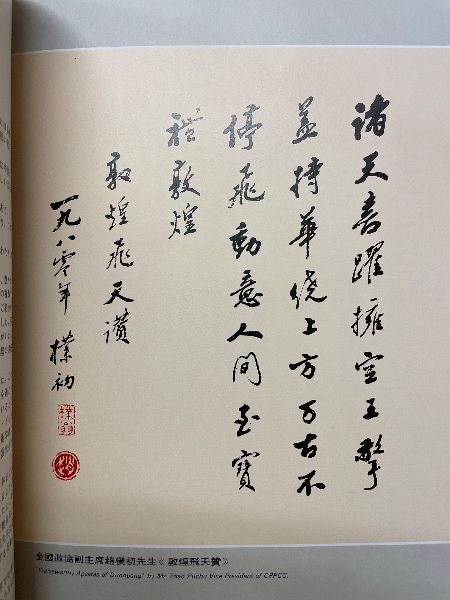 诸天喜躍擁空王擎
盖持華绕上方万古不
停飛動意人间至寶
禮敦煌
敦煌飛天讚
一九八零年 樸初
全國政協副主席趙樸初先生《敦煌飛天贊》
"Praiseworthy Apsaras of Dunhuang" by Mr. Zhao Puchu Vice President of CPPCC.